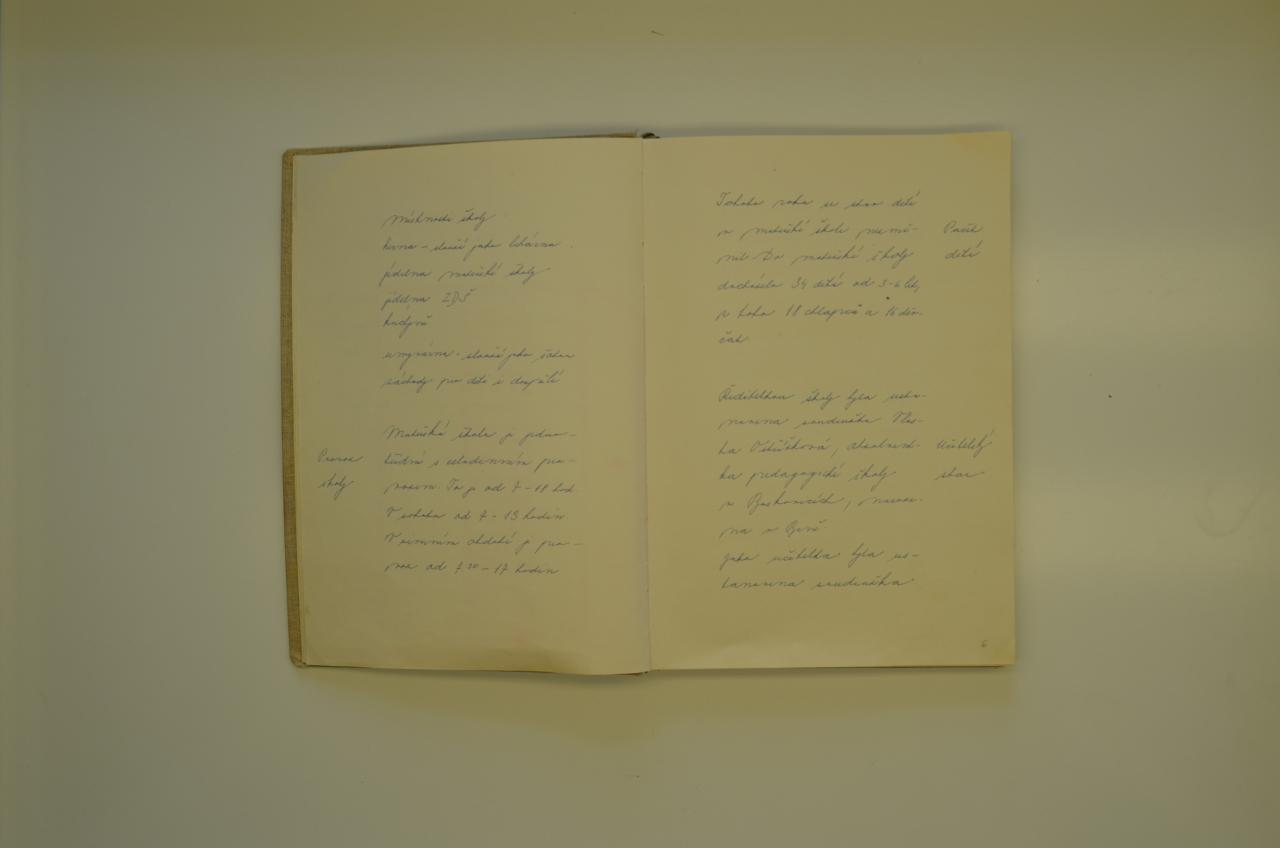 místnosti školy
herna - slouží jako lehárna
jídelna mateřské školy
jídelna ZDŠ
kuchyně
umývárna - slouží jako šatna
záchody pro děti i dospělé
Mateřská škola je jedno-
Provoz
třídní s celodenním pro-
školy
vozem. To je od 7 - 18 hod.
V sobotu od 7 - 13 hodin.
V zimním období je pro-
voz od 7 30 - 17 hodin
Tohoto roku se stav dětí
v mateřské škole nezmě-
nil. Do mateřské školy
docházelo 34 dětí od 3-6 let,
z toho 18 chlapců a 16 děv-
čat.
Počet
dětí
Ředitelkou školy byla usta-
novena soudružka Vlas-
ta, absolvent-
ka pedagogické školy
v Boskovicích,
na v Brně
Jako učitelka byla us-
tanovena soudružka
Učitelský
stav
6